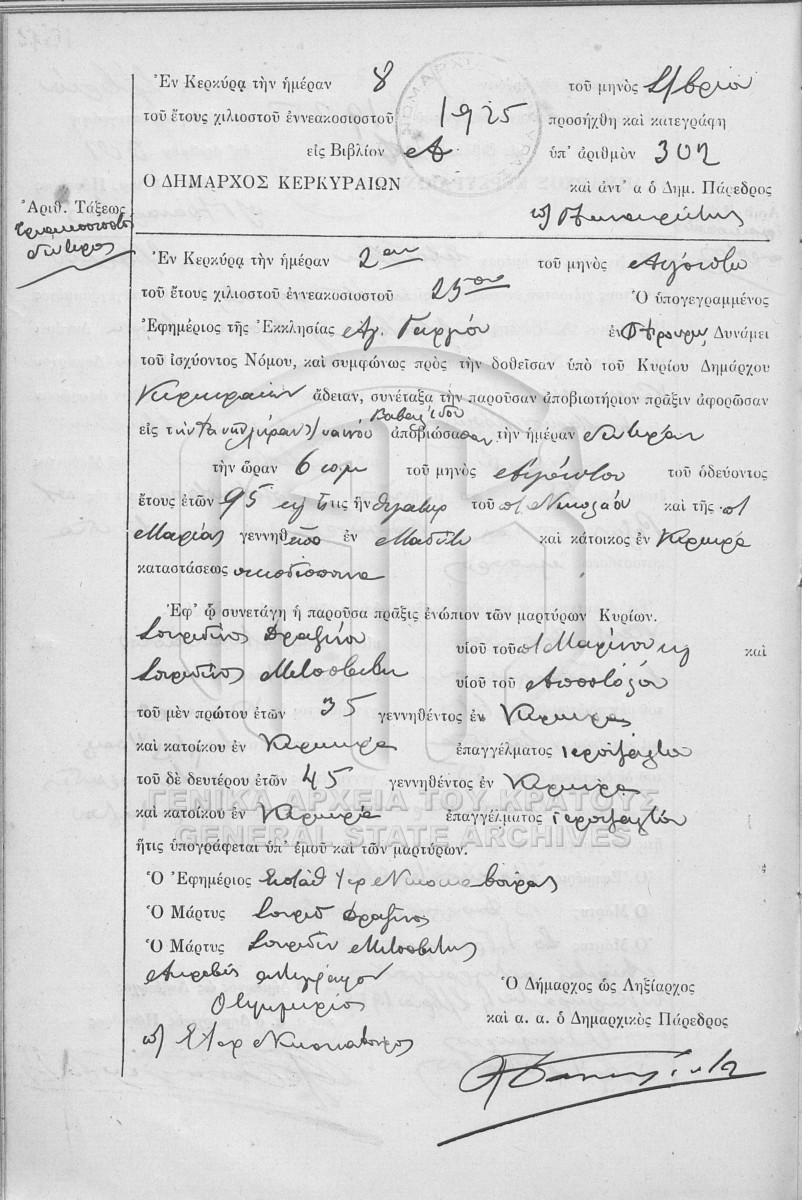 Ἐν Κερκύρᾳ τὴν ἡμέραν 8 τοῦ μηνὸς 7/βρίου
τοῦ ἔτους χιλιοστοῦ ἐννεακοσιοστοῦ 1925 προσήχθη καὶ κατεγράφη
εἰς Βιβλίον Α ὑπ' ἀριθμὸν 302
Ο ΔΗΜΑΡΧΟΣ ΚΕΡΚΥΡΑΙΩΝ καὶ ἀντ' α ὁ Δημ. Πάρεδρος
Ἀριθ. Τάξεως
τριακοσιοστὸς
δεύτερος
Ἐν Κερκύρᾳ τὴν ἡμέραν 2αν τοῦ μηνὸς Αὐγούστου
τοῦ ἔτους χιλιοστοῦ ἐννεακοσιοστοῦ 25ου Ὁ ὑπογεγραμμένος
Ἐφημέριος τῆς Ἐκκλησίας Ἁγ. Γεωργίου ἐν Φρουρίῳ Δυνάμει
τοῦ ἰσχύοντος Νόμου, καὶ συμφώνως πρὸς τὴν δοθεῖσαν ὑπὸ τοῦ Κυρίου Δημάρχου
Κερκυραίων ἄδειαν, συνέταξα τὴν παροῦσαν ἀποβιωτήριον πρᾶξιν ἀφορῶσαν
εἰς τὴν ἀποβιώσασαν τὴν ἡμέραν Δευτέραν
τὴν ὥραν 6 π.μ. τοῦ μηνὸς Αὐγούστου τοῦ ὁδεύοντος
ἔτους ἐτῶν 95 ἥτις ἦν θυγάτηρ τοῦ π/ Νικολάου καὶ τῆς π/
Μαρίας γεννηθεῖσα ἐν Μαδύτῳ καὶ κάτοικος ἐν Κερκύρᾳ
καταστάσεως οἰκοδέσποινα
Ἐφ' ᾧ συνετάγη ἡ παροῦσα πρᾶξις ἐνώπιον τῶν μαρτύρων Κυρίων.
Σπυρίδωνος υἱοῦ τοῦ π/ Μαρίνου καὶ
Σπυρίδωνος υἱοῦ τοῦ Ἀποστόλου
τοῦ μὲν πρώτου ἐτῶν 35 γεννηθέντος ἐν Κερκύρᾳ
καὶ κατοίκου ἐν Κερκύρᾳ ἐπαγγέλματος ἱεροψάλτου
τοῦ δὲ δευτέρου ἐτῶν 45 γεννηθέντος ἐν Κερκύρᾳ
καὶ κατοίκου ἐν Κερκύρᾳ ἐπαγγέλματος ἱεροψάλτου
ΓΕΝΙΚΑ ΑΡΧΕΙΑ ΤΟΥ ΚΡΑΤΟΥΣ
GENERAL STATE ARCHIVES
ἥτις ὑπογράφεται ὑπ' ἐμοῦ καὶ τῶν μαρτύρων.
Ὁ Ἐφημέριος
Ὁ Μάρτυς Σπυρίδ
Ὁ Μάρτυς Σπυρίδων
Ἀκριβὲς ἀντίγραφον
Ὁ Ἐφημέριος
Ὁ Δήμαρχος ὡς Ληξίαρχος
καὶ α. α. ὁ Δημαρχικὸς Πάρεδρος